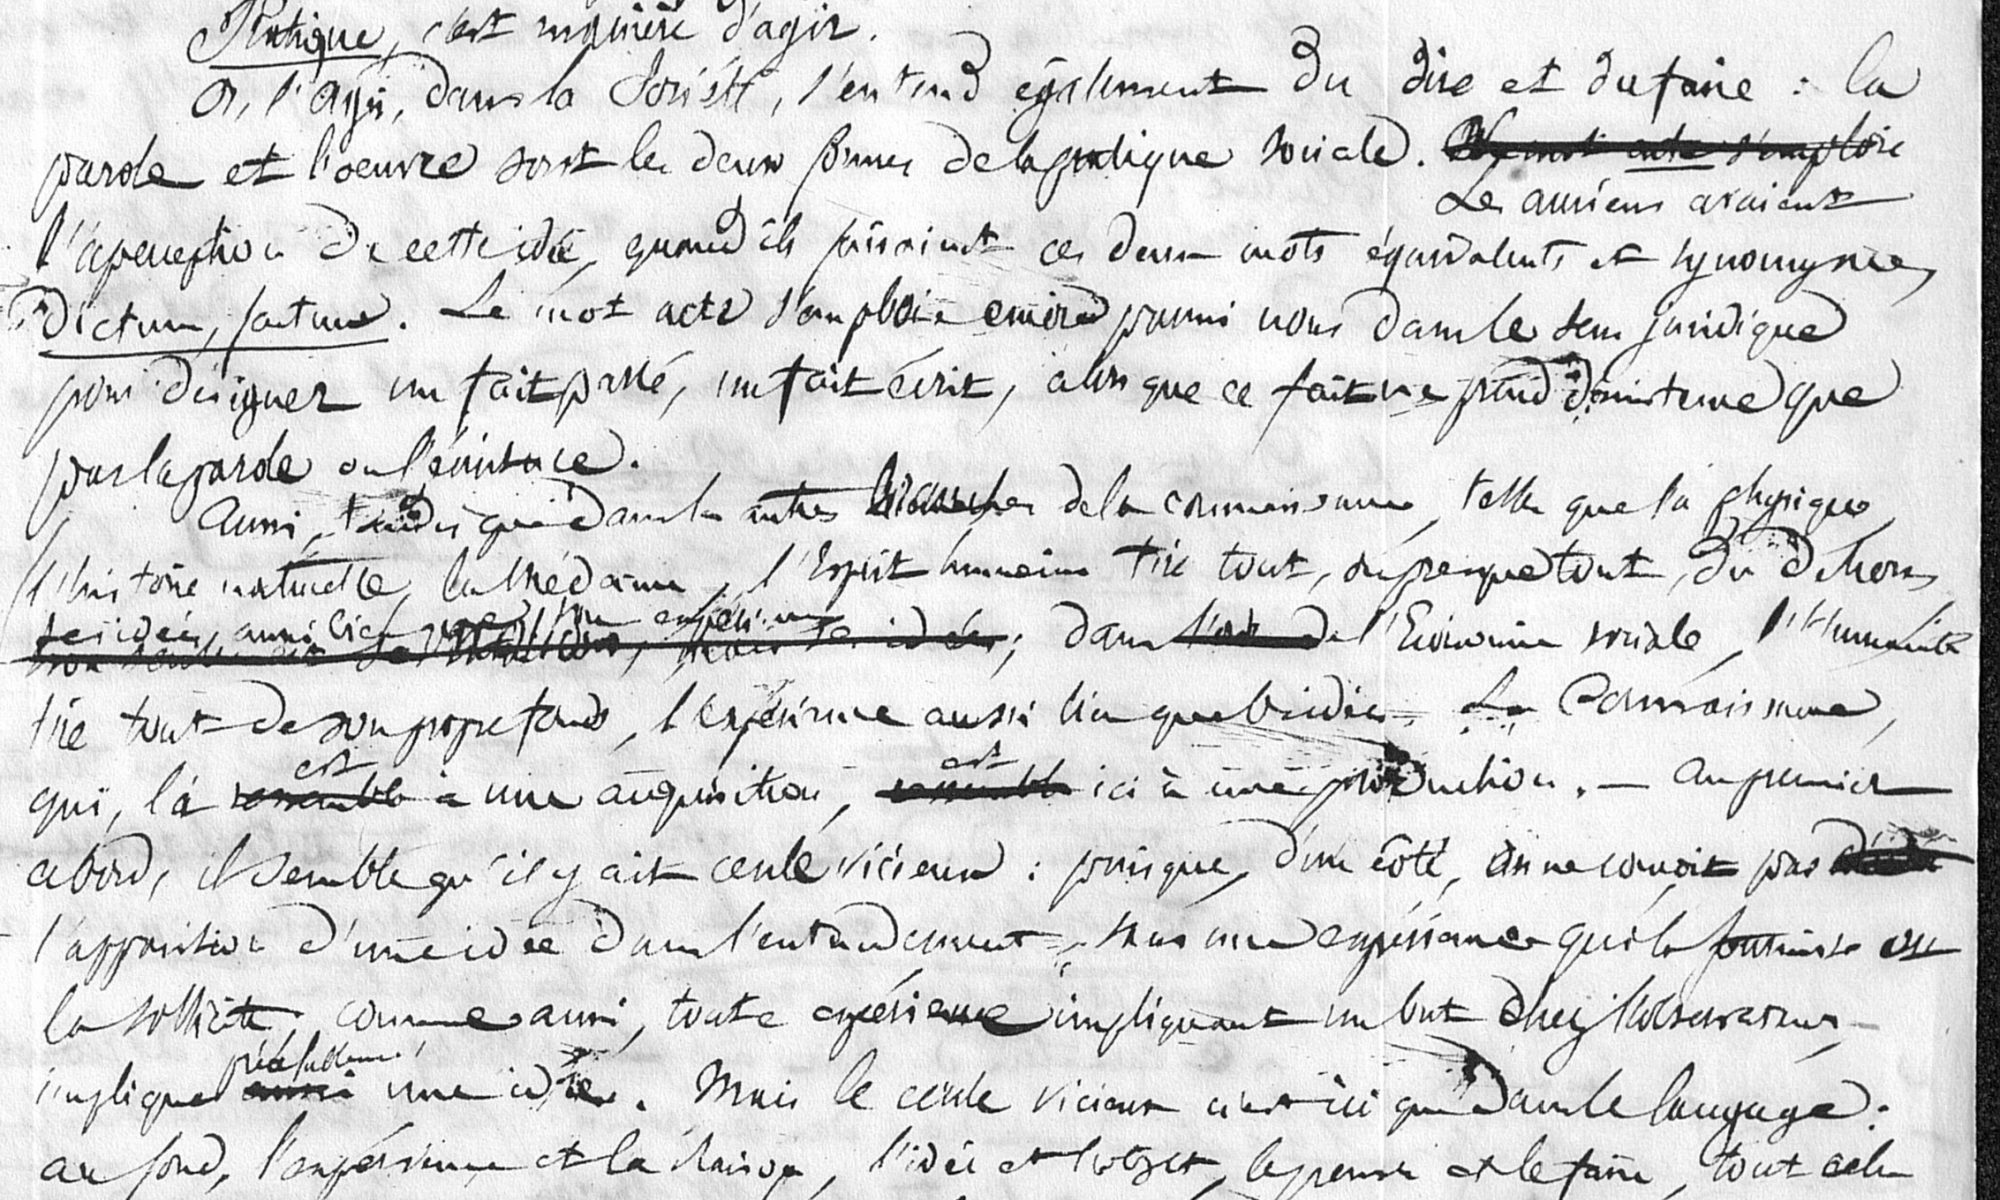 Pratique, c'est manière d'agir.
Or, l'agir, dans la Société, s'entend également du dire et du faire : la
parole et l'oeuvre sont les deux formes de la pratique sociale. Le mot acte s'emploie
Les anciens avaient
l'aperception de cette idée, quand ils faisaient ces deux mots équivalents et synonymes,
dictum, factum. Le mot acte s'emploie encore parmi nous dans le sens juridique
pour désigner un fait passé, un fait écrit, alors que ce fait ne prend d'existence que
par la parole ou l'écriture.
Aussi, tandis que dans les autres branches de la connaissance, telles que la physique,
l'histoire naturelle, la médecine, l'Esprit humain tire tout, ou presque tout, du dehors,
ses idées, aussi bien que son expérience
; dans l'ordre de l'Economie sociale, l'Humanité
tire tout de son propre fonds, l'expérience aussi bien que les idées. La Connaissance,
est est
qui, là ressemble à une acquisition, ressemble ici à une production. — Au premier
abord, il semble qu'il y ait cercle vicieux : puisque, d'un côté, on ne conçoit pas
l'apparition d'une idée dans l'entendement, sans une expérience qui la fournisse ou
la sollicite, comme aussi, toute expérience impliquant un but chez l'observateur,
implique aussi une idée. Mais le cercle vicieux n'est ici que dans le langage :
au fond, l'expérience et la raison, l'idée et l'objet, le penser et le faire, tout cela